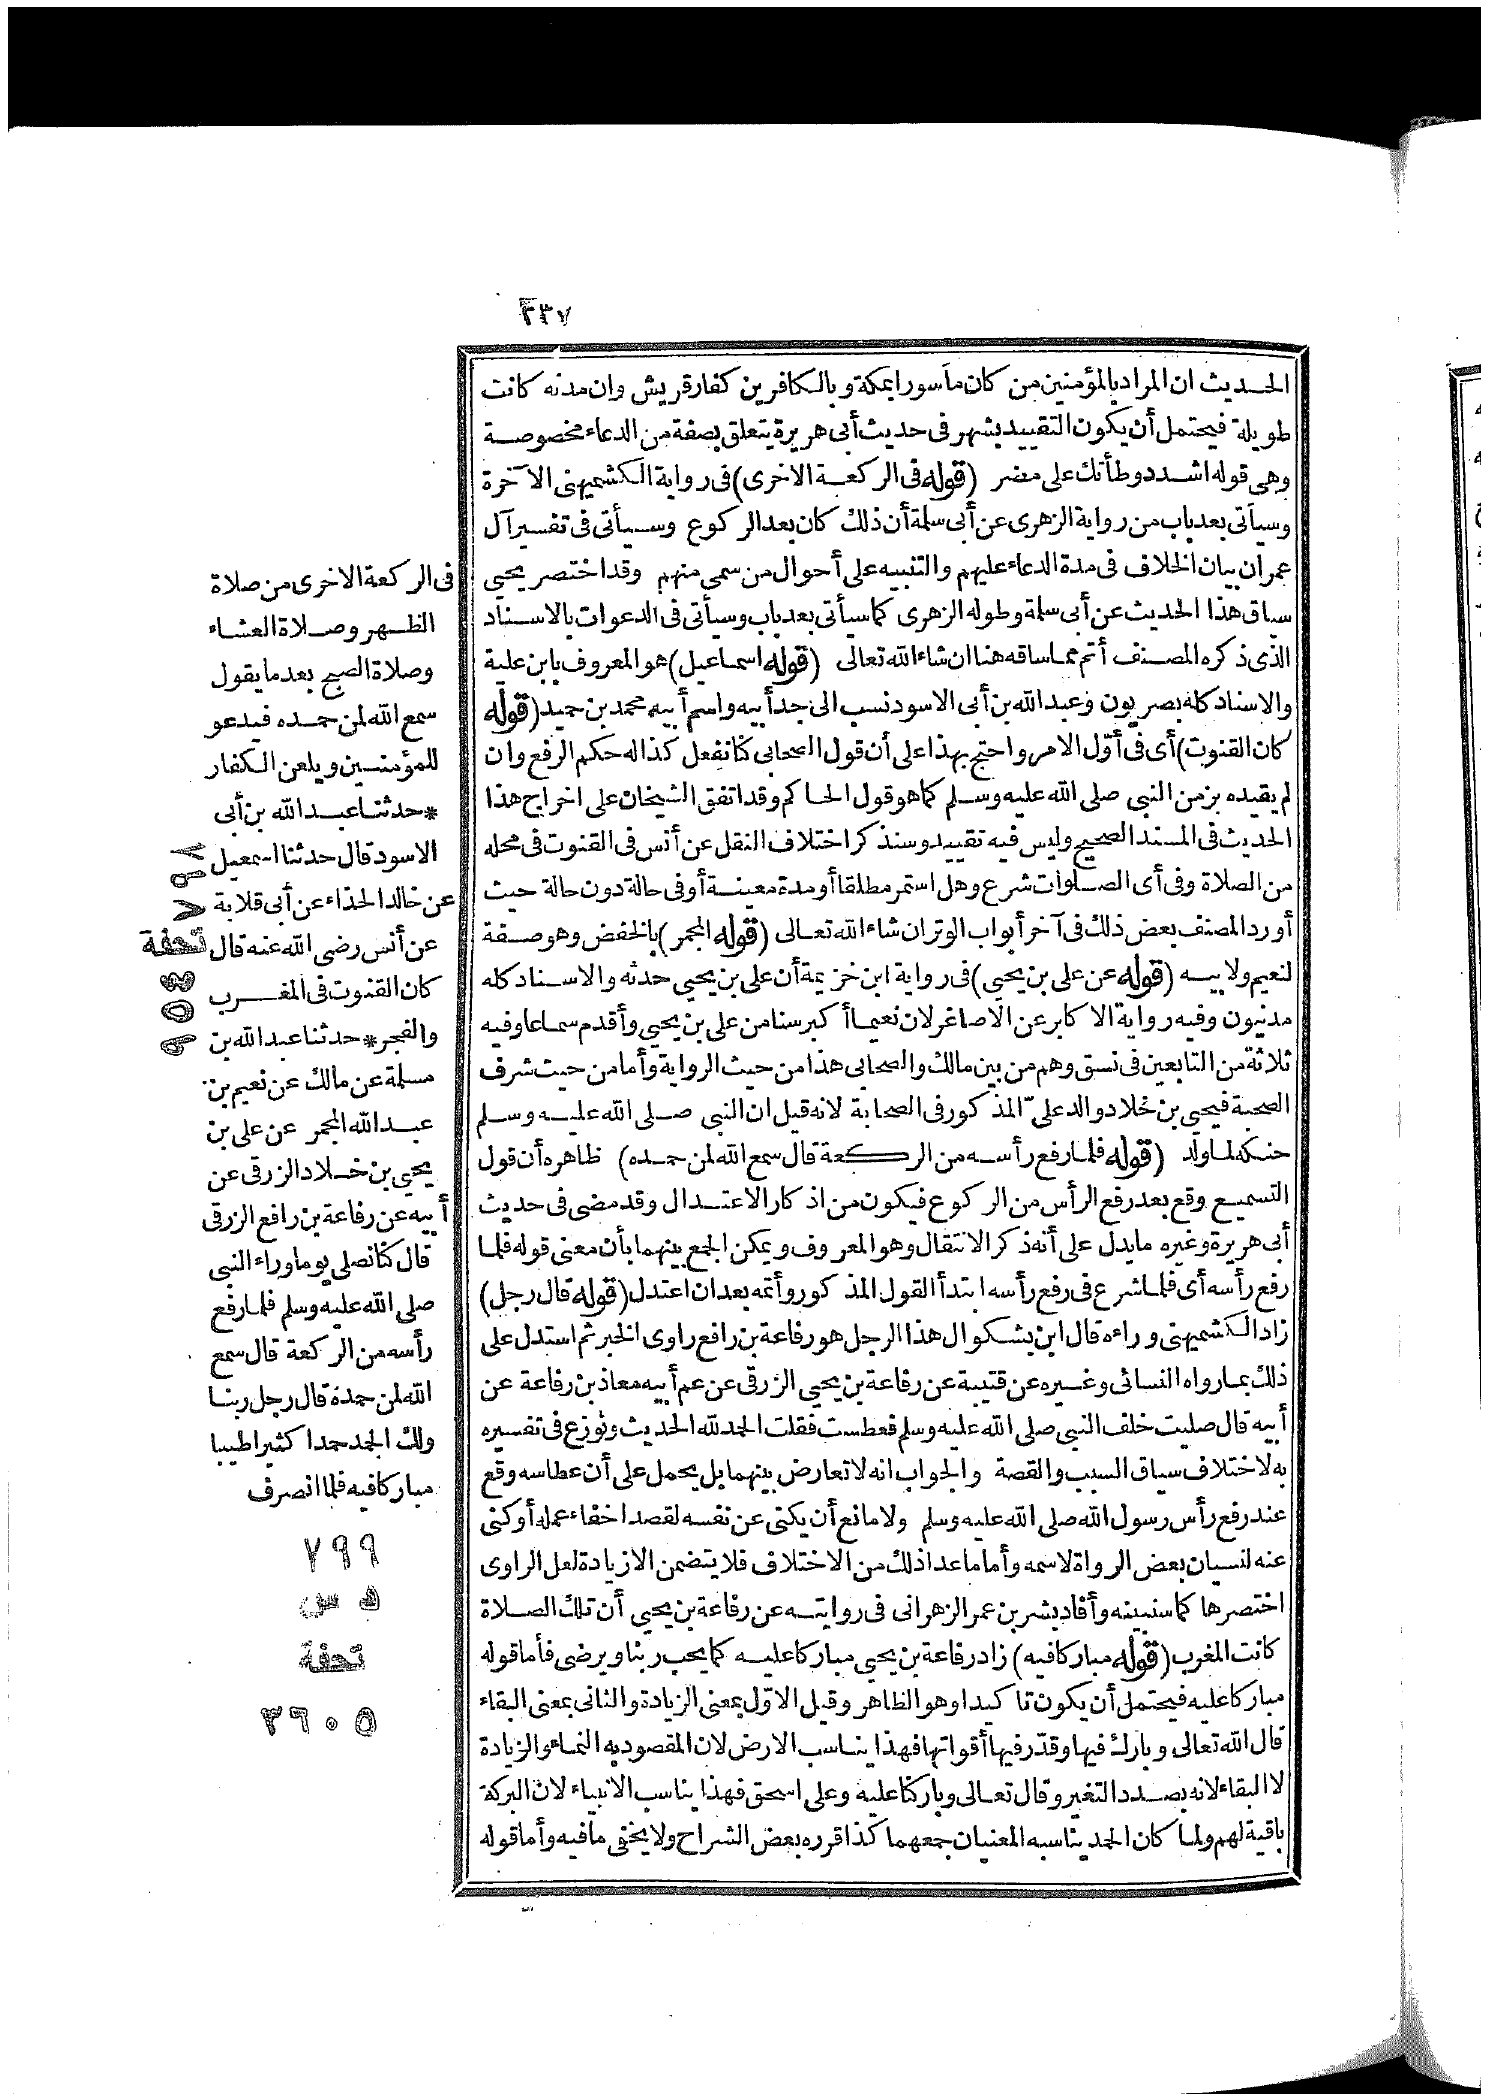 ٢٣٧
الحديث ان المراد بالمؤمنين من كان مأسورا بمكة وبالكافرين كفار قريش وان مدته كانت
طويلة فيحتمل أن يكون التقييد بشهر فى حديث أبى هريرة يتعلق بصفة من الدعاء مخصوصة
وهى قوله اشدد وطأتك على مضر (قوله فى الركعة الاخرى) فى رواية الكشميهنى الآخرة
وسيأتى بعد باب من رواية الزهرى عن أبى سلمة أن ذلك كان بعد الركوع وسيأتى فى تفسير آل
عمران بيان الخلاف فى مدة الدعاء عليهم والتنبيه على أحوال من سمى منهم وقد اختصر يحيى
سياق هذا الحديث عن أبى سلمة وطوله الزهرى كما سيأتى بعد باب وسيأتى فى الدعوات بالاسناد
الذى ذكره المصنف أتم مما ساقه هنا ان شاء الله تعالى (قوله اسماعيل) هو المعروف بابن علية
والاسناد كله بصريون وعبد الله بن أبى الاسود نسب الى جد أبيه واسم أبيه محمد بن حميد (قوله
كان القنوت) أى فى أوّل الامر واحتج بهذا على أن قول الصحابى كنا نفعل كذا له حكم الرفع وان
لم يقيده بزمن النبى صلى الله عليه وسلم كما هو قول الحاكم وقد اتفق الشيخان على اخراج هذا
الحديث فى المسند الصحيح وليس فيه تقييد وسنذكر اختلاف النقل عن أنس فى القنوت فى محله
من الصلاة وفى أى الصلوات شرع وهل استمر مطلقا أو مدة معينة أو فى حالة دون حالة حيث
أورد المصنف بعض ذلك فى آخر أبواب الوتر ان شاء الله تعالى (قوله المجمر) بالخفض وهو صفة
لنعيم ولابيه (قوله عن على بن يحيى) فى رواية ابن خزيمة أن على بن يحيى حدثه والاسناد كله
مدنيون وفيه رواية الاكابر عن الاصاغر لان نعيما أكبر سنا من على بن يحيى وأقدم سماعا وفيه
ثلاثة من التابعين فى نسق وهم من بين مالك والصحابى هذا من حيث الرواية وأما من حيث شرف
الصحبة فيحيى بن خلاد والد علىّ المذكور فى الصحابة لانه قيل ان النبى صلى الله عليه وسلم
حنكه لما ولد (قوله فلما رفع رأسه من الركعة قال سمع الله لمن حمده) ظاهره أن قول
التسميع وقع بعد رفع الرأس من الركوع فيكون من اذكار الاعتدال وقد مضى فى حديث
أبى هريرة وغيره ما يدل على أنه ذكر الانتقال وهو المعروف ويمكن الجمع بينهما بأن معنى قوله فلما
رفع رأسه أى فلما شرع فى رفع رأسه ابتدأ القول المذكور وأتمه بعد ان اعتدل (قوله قال رجل)
زاد الكشميهنى وراءه قال ابن بشكوال هذا الرجل هو رفاعة بن رافع راوى الخبر ثم استدل على
ذلك بما رواه النسائى وغيره عن قتيبة عن رفاعة بن يحيى الزرقى عن عم أبيه معاذ بن رفاعة عن
أبيه قال صليت خلف النبى صلى الله عليه وسلم فعطست فقلت الحمد لله الحديث ونوزع فى تفسيره
به لاختلاف سياق السبب والقصة والجواب انه لا تعارض بينهما بل يحمل على أن عطاسه وقع
عند رفع رأس رسول الله صلى الله عليه وسلم ولا مانع أن يكنى عن نفسه لقصد اخفاء عمله أو كنى
عنه لنسيان بعض الرواة لاسمه وأما ما عدا ذلك من الاختلاف فلا يتضمن الا زيادة لعل الراوى
اختصرها كما سنبينه وأفاد بشر بن عمر الزهرانى فى روايته عن رفاعة بن يحيى أن تلك الصلاة
كانت المغرب (قوله مباركا فيه) زاد رفاعة بن يحيى مباركا عليه كما يحب ربنا ويرضى فأما قوله
مباركا عليه فيحتمل أن يكون تاكيدا وهو الظاهر وقيل الاوّل بمعنى الزيادة والثانى بمعنى البقاء
قال الله تعالى وبارك فيها وقدّر فيها أقواتها فهذا يناسب الارض لان المقصود به النماء والزيادة
لا البقاء لانه بصدد التغير وقال تعالى وباركنا عليه وعلى اسحق فهذا يناسب الانبياء لان البركة
باقية لهم ولما كان الحمد يناسبه المعنيان جمعهما كذا قرره بعض الشراح ولا يخفى ما فيه وأما قوله
فى الركعة الاخرى من صلاة
الظهر وصلاة العشاء
وصلاة الصبح بعد ما يقول
سمع الله لمن حمده فيدعو
للمؤمنين ويلعن الكفار
* حدثنا عبد الله بن أبى
الاسود قال حدثنا اسمعيل
عن خالد الحذاء عن أبى قلابة
عن أنس رضى الله عنه قال
كان القنوت فى المغرب
والفجر * حدثنا عبد الله بن
مسلمة عن مالك عن نعيم بن
عبد الله المجمر عن على بن
يحيى بن خلاد الزرقى عن
أبيه عن رفاعة بن رافع الزرقى
قال كنا نصلى يوما وراء النبى
صلى الله عليه وسلم فلما رفع
رأسه من الركعة قال سمع
الله لمن حمدة قال رجل ربنا
ولك الحمد حمدا كثيرا طيبا
مباركا فيه فلما انصرف
تحفة
٧٩٩
د س
تحفة
٣٦٠٥